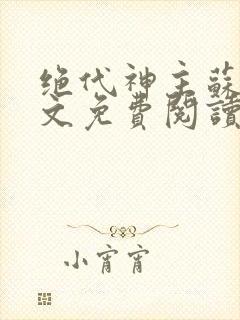 绝代神主蘇
文免費閱讀
小宵宵